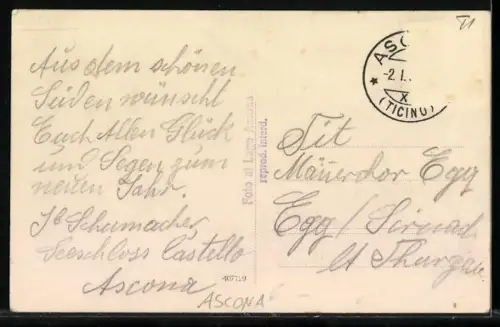 Aus dem schönen
Süden wünscht
Euch Allen Glück
und Segen zum
neuen Jahr.
Jb Schumacher,
Seeschloss Castello
Ascona
ASCONA
407719
Foto al Lago Ascona
reprod. interd.
ASC
-2.I.
X
* (TICINO)
TI
Tit
Männerchor Egg
Egg/Sirnach
Ct Thurgau